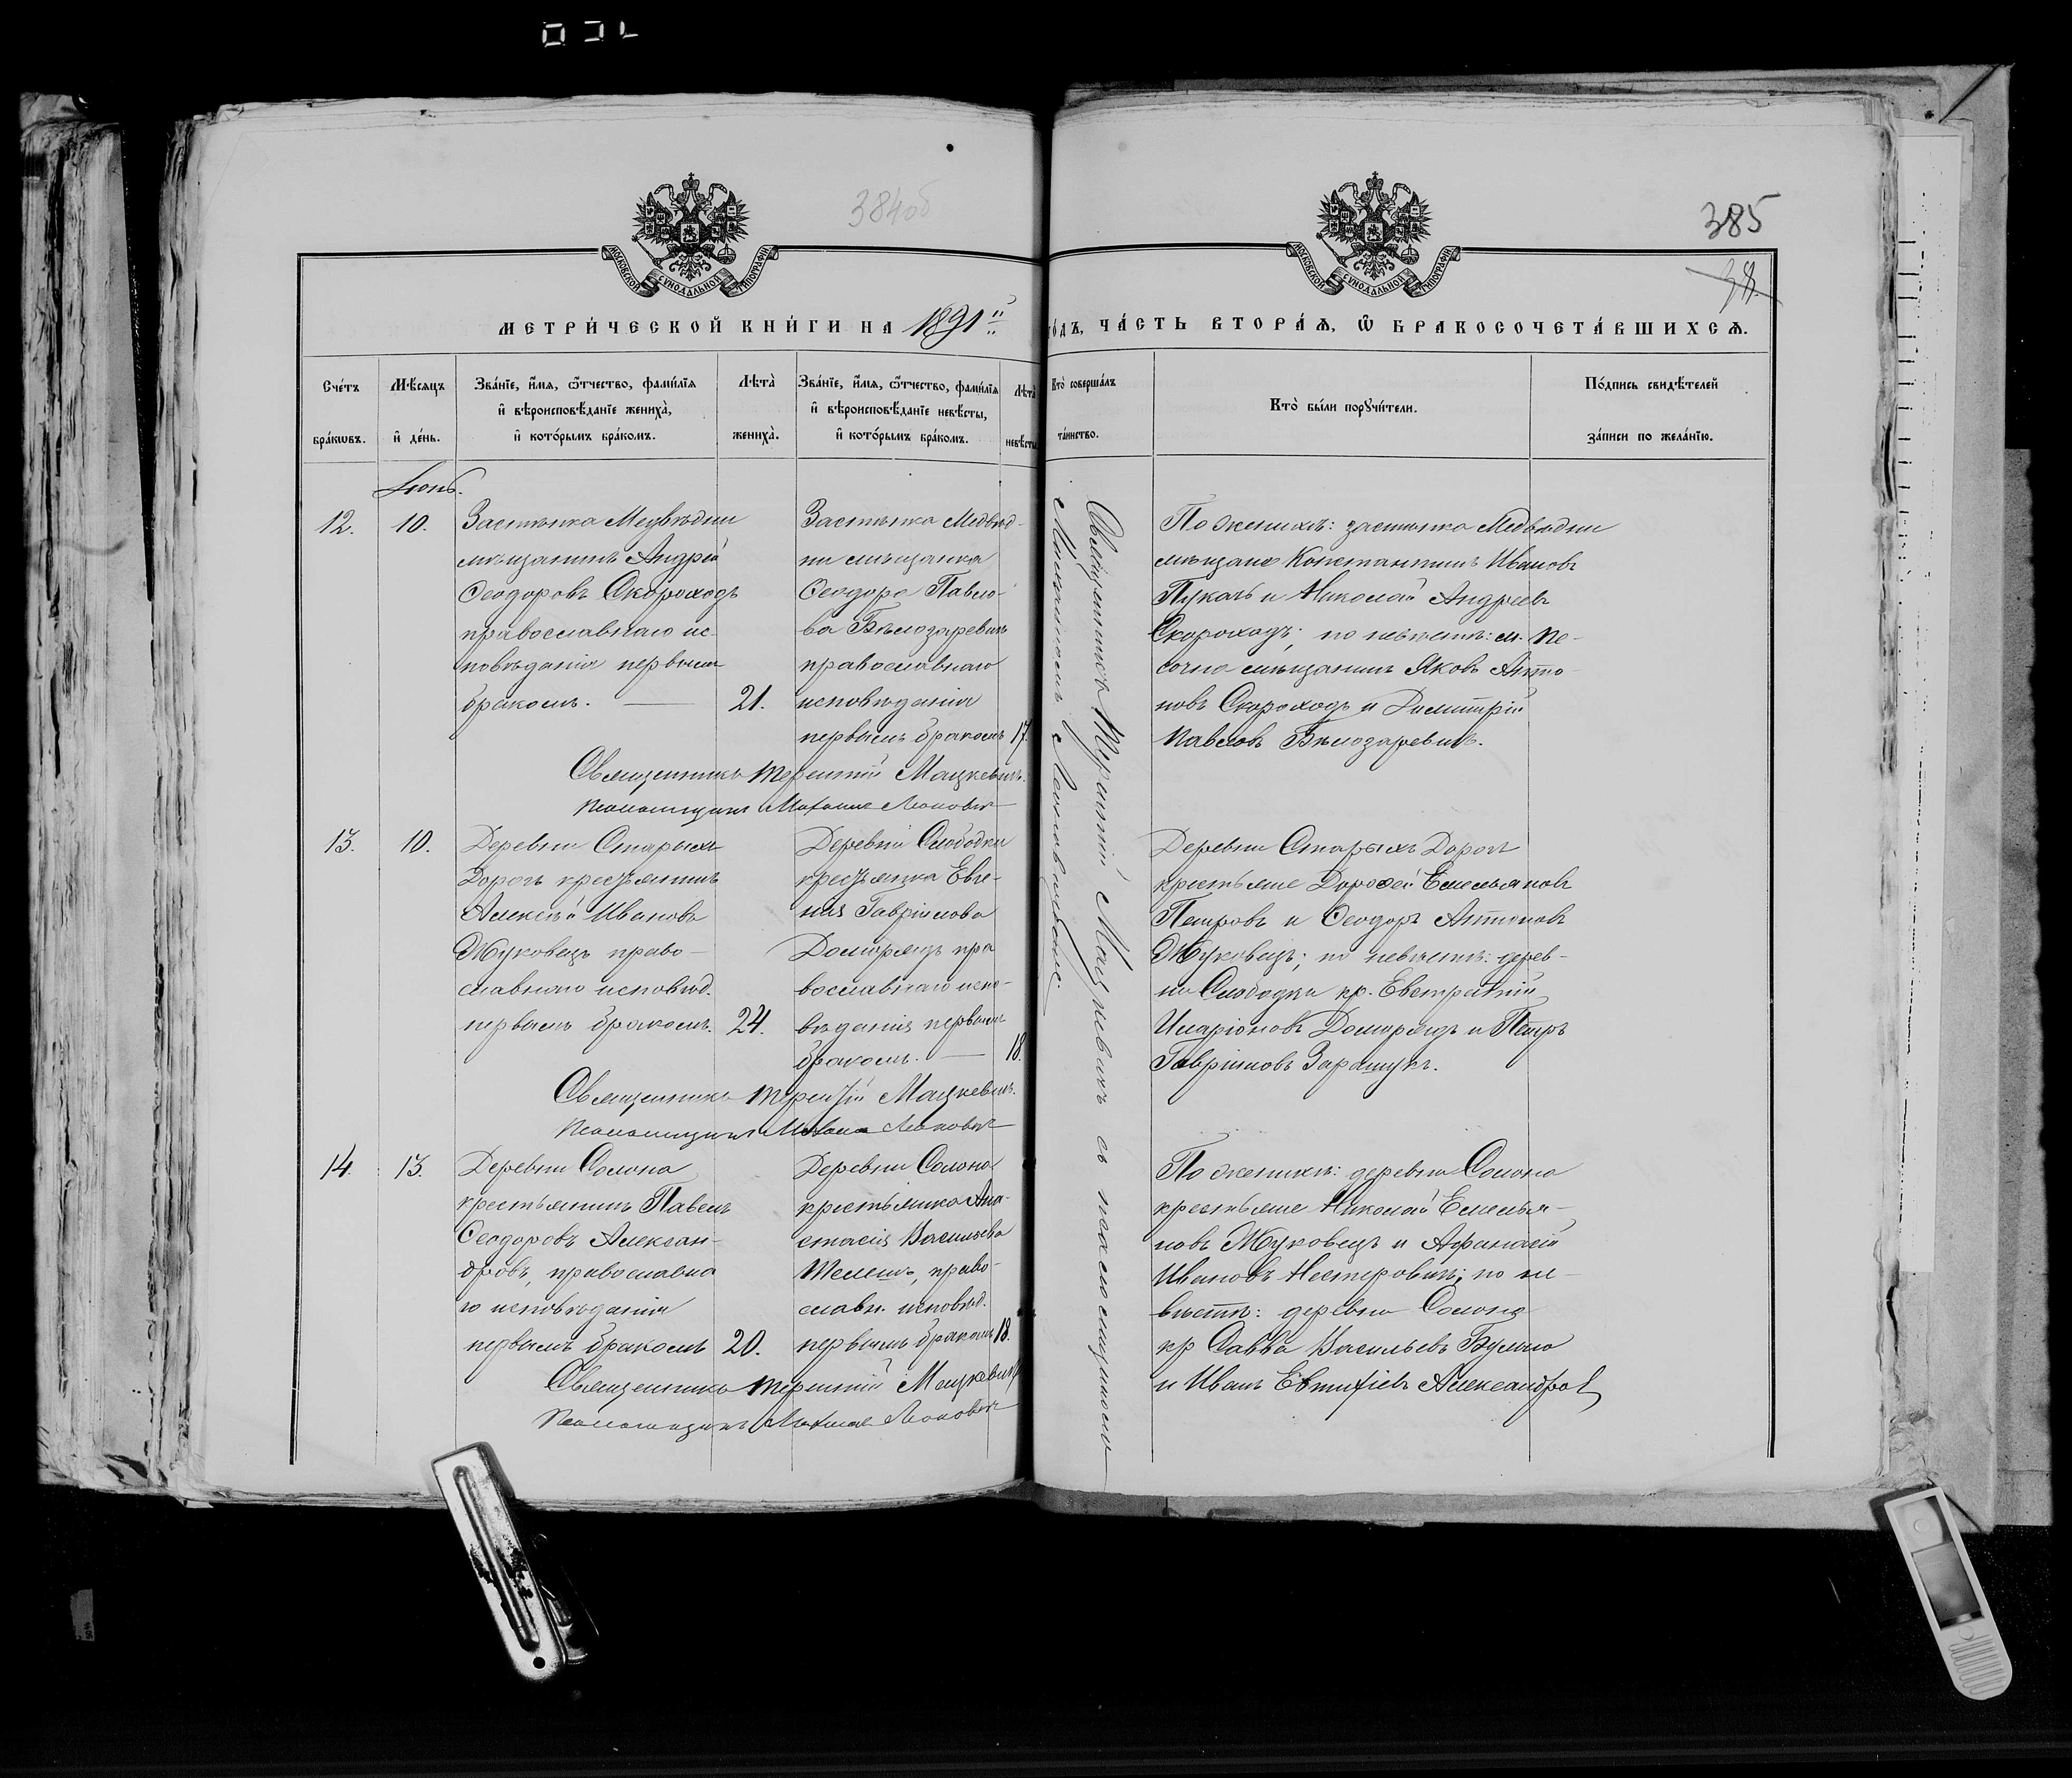 384об
385
МОСКОВСКОЙ СѴНОДАЛЬНОЙ ТИПОГРАФІИ
МОСКОВСКОЙ СѴНОДАЛЬНОЙ ТИПОГРАФІИ
МЕТРИ́ЧЕСКОЙ КНИ́ГИ НА 1891й
го́дъ, ЧА́СТЬ ВТОРА́Ѧ, Ѿ БРАКОСОЧЕТА́ВШИХСѦ.
Сче́тъ бра́кѡвъ.
Мѣ́сѧцъ и҆ де́нь.
Зва́нїе, и҆́мѧ, ѻ҆́тчество, фами́лїѧ и҆ вѣроисповѣ́данїе жениха̀, и҆ кото́рымъ бра́комъ.
Лѣта̀ жениха̀.
Зва́нїе, и҆́мѧ, ѻ҆́тчество, фами́лїѧ и҆ вѣроисповѣ́данїе невѣ́сты, и҆ кото́рымъ бра́комъ.
Лѣта̀ невѣ́сты
Кто̀ соверша́лъ та́инство.
Кто̀ бы́ли порꙋчи́тели.
По́дпись свидѣ́телей за́писи по жела́нїю.
Іюнь.
12.
10.
Застѣнка Медвѣдни
мѣщанинъ Андрей
Ѳеодоровъ Скороходъ
православнаго ис-
повѣданія первымъ
бракомъ. —
21.
Застѣнка Медвѣд-
ни мѣщанка
Ѳеодора Павло-
ва Бѣлозаревичъ
православнаго
исповѣданія
первымъ бракомъ
17.
По женихѣ: застѣнка Медвѣдни
мѣщане Константинъ Ивановъ
Пукачъ и Николай Андреевъ
Скороходъ; по невѣстѣ: м. Пе-
сочно мѣщанинъ Яковъ Анто-
новъ Скороходъ и Димитрій
Павловъ Бѣлозаревичъ.
Священникъ Терентій Мацкевичъ.
Псаломщикъ Михаилъ Леоновичъ
Священникъ Терентій Мацкевичъ съ псаломщикомъ
Михаиломъ Леоновичемъ.
13.
10.
Деревни Старыхъ
Дорогъ крестьянинъ
Алексѣй Ивановъ
Жуковецъ право-
славнаго исповѣд.
первымъ бракомъ.
24.
Деревни Слободки
крестьянка Евге-
нія Гавріилова
Доморадъ пра
вославнаго испо-
вѣданія первымъ
бракомъ. —
18.
Деревни Старыхъ Дорогъ
крестьяне Дороѳей Емельяновъ
Петровъ и Ѳеодоръ Антоновъ
Жуковецъ; по невѣстѣ: дерев-
ни Слободки кр. Евстратій
Иларіоновъ Доморадъ и Петръ
Гавріиловъ
Священникъ Терентій Мацкевичъ.
Псаломщикъ Михаилъ Леоновичъ
14.
13.
Деревни Солона
крестьянинъ Павелъ
Ѳеодоровъ Алексан-
дровъ, православна
го исповѣданія
первымъ бракомъ
20.
Деревни Солона
крестьянка Ана-
стасія Васильева
Телешъ, право-
славн. исповѣд.
первымъ бракомъ
18.
По женихѣ: деревни Солона
крестьяне Николай Емелья-
новъ Жуковецъ и Аѳанасій
Ивановъ Нестеровичъ; по не-
вѣстѣ: деревни Солона
кр Савва Васильевъ
и Иванъ Евтихіевъ Александров
Священникъ Терентій Мацкевичъ
Псаломщикъ Михаилъ Леоновичъ